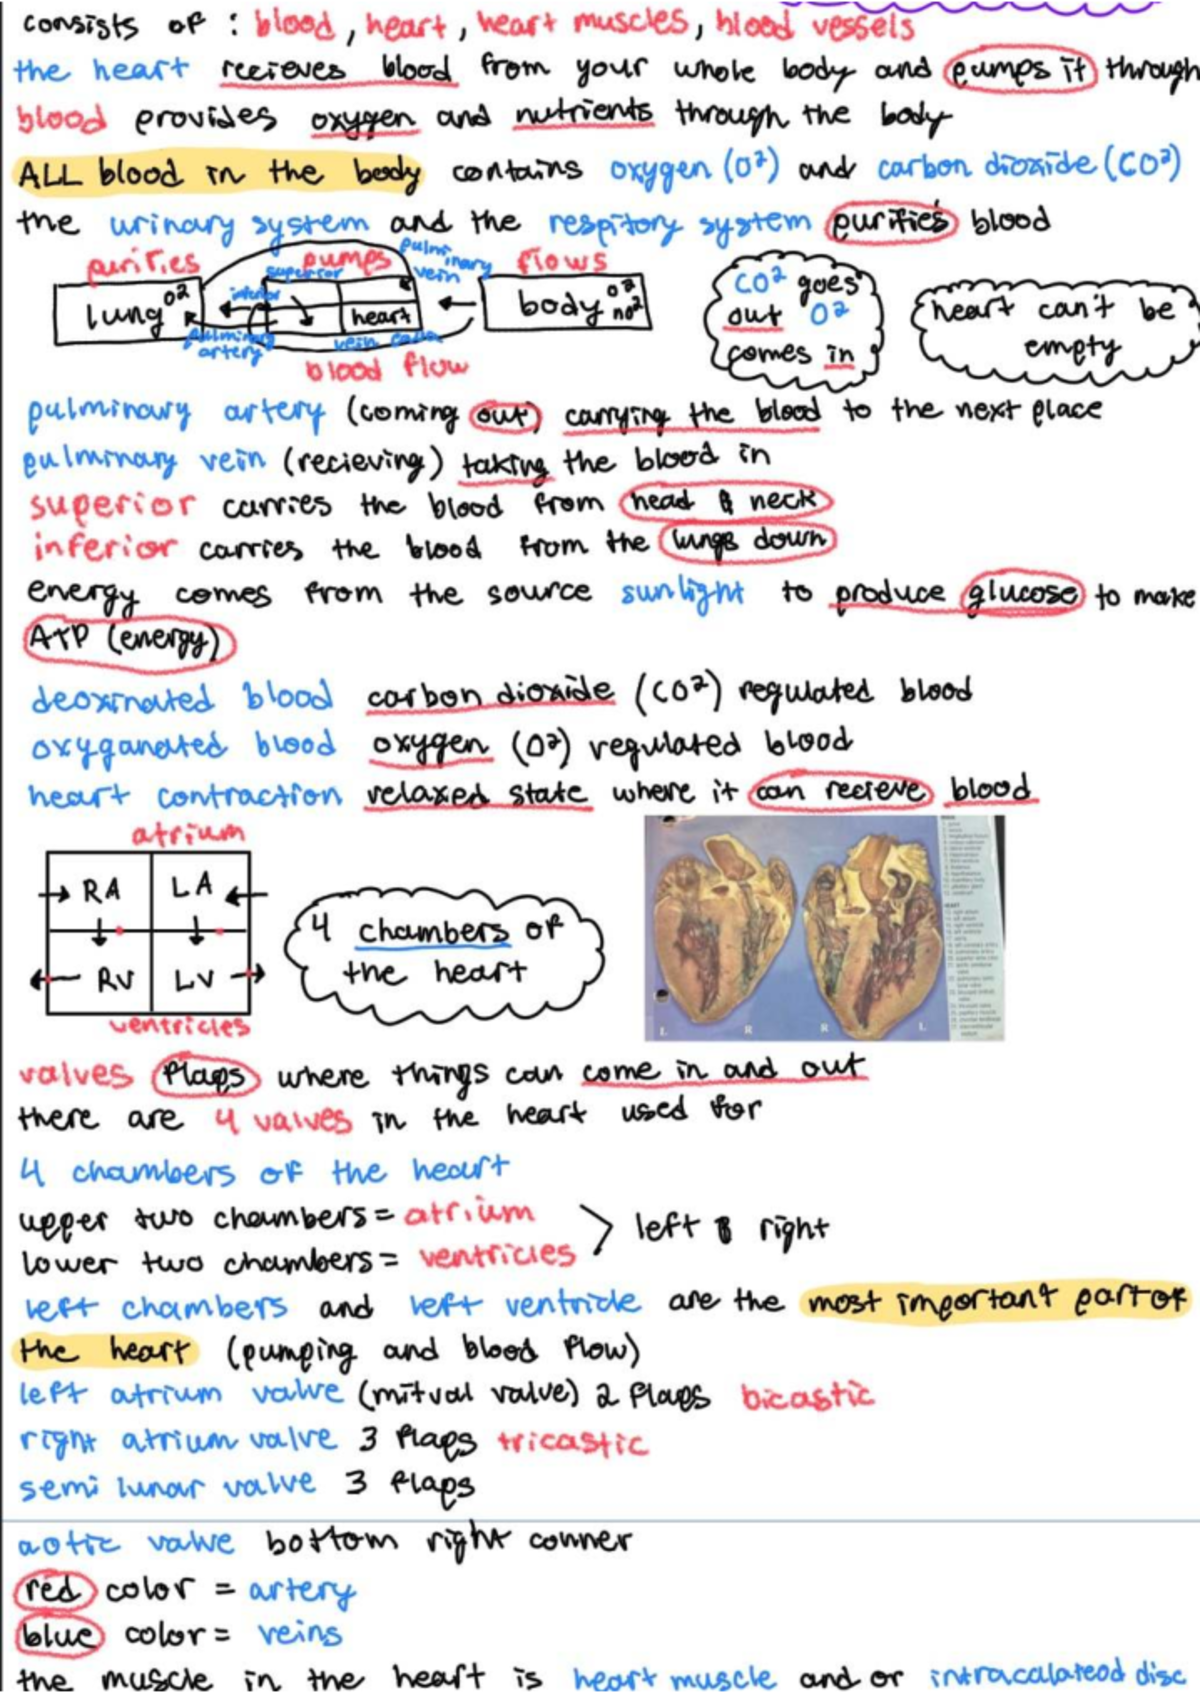 consists of : blood, heart, heart muscles, blood vessels
the heart recieves blood from your whole body and pumps it through
blood provides oxygen and nutrients through the body
ALL blood in the body contains oxygen (O²) and carbon dioxide (CO²)
the urinary system and the respitory system purifies blood
purifies pumps pulminary vein flows
superior
lung O² inferior heart body O² no²
pulminary artery vein cava
blood flow
CO² goes
out O²
comes in
heart can't be
empty
pulminary artery (coming out) carrying the blood to the next place
pulminary vein (recieving) taking the blood in
superior carries the blood from head & neck
inferior carries the blood from the lungs down
energy comes from the source sunlight to produce glucose to make
ATP (energy)
deoxinated blood carbon dioxide (CO²) regulated blood
oxyganated blood oxygen (O²) regulated blood
heart contraction relaxed state where it can recieve blood
atrium
RA LA
RV LV
ventricles
4 chambers of
the heart
L R R L
valves flaps where things can come in and out
there are 4 valves in the heart used for
4 chambers of the heart
upper two chambers = atrium > left & right
lower two chambers = ventricles
left chambers and left ventricle are the most important part of
the heart (pumping and blood flow)
left atrium valve (mitval valve) 2 flaps bicastic
right atrium valve 3 flaps tricastic
semi lunar valve 3 flaps
aotic valve bottom right conner
red color = artery
blue color = veins
the muscle in the heart is heart muscle and or intracalateod disc